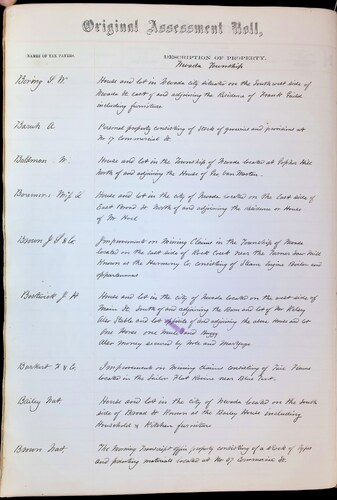 Original Assessment Roll,
NAMES OF TAX PAYERS.
DESCRIPTION OF PROPERTY.
Nevada Township
Boring S W
House and lot in Nevada City situated on the South east side of
Nevada St east of and adjoining the Residence of Frank
including furniture
Baruh A
Personal property consisting of Stock of groceries and provisions at
No 17 Commercial St.
Beldman W.
House and lot in the Township of Nevada located at Gopher Hill
North of and adjoining the House of Geo Van
House and lot in the city of Nevada located on the East side of
East Broad St North of and adjoining the residence or House
of Mr
Brown J & Co
Improvement on Mining Claims in the Township of Nevada
located on the east side of Rock Creek near the Saw Mill
Known as the Harmony Co consisting of Steam Engine Boiler and
appurtenances
Bostwick J H
House and lot in the city of Nevada located on the east side of
Main St. South of and adjoining the Barn and lot of Mr Kelsey
Also Stable and lot opposite of and adjoining the above House and lot
One Horse one and Buggy
Also money secured by Note and Mortgage
& Co.
Improvements on Mining claims consisting of Flumes
located in the Flat near Blue Tent.
Bailey Nat
House and lot in the city of Nevada located on the South
side of Broad St Known as the Bailey House including
Household & Kitchen furniture
Brown Nat
The Morning Transcript office property consisting of a Stock of types
and printing materials located at No 67 Commercial St.